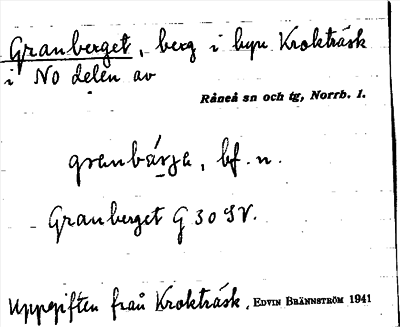 Granberget, berg i byn Krokträsk
i NO delen av
Råneå sn och tg, Norrb. l.
granbärje, bf. n.
Granberget G 30 SV.
Uppgiften från Krokträsk. EDVIN BRÄNNSTRÖM 1941